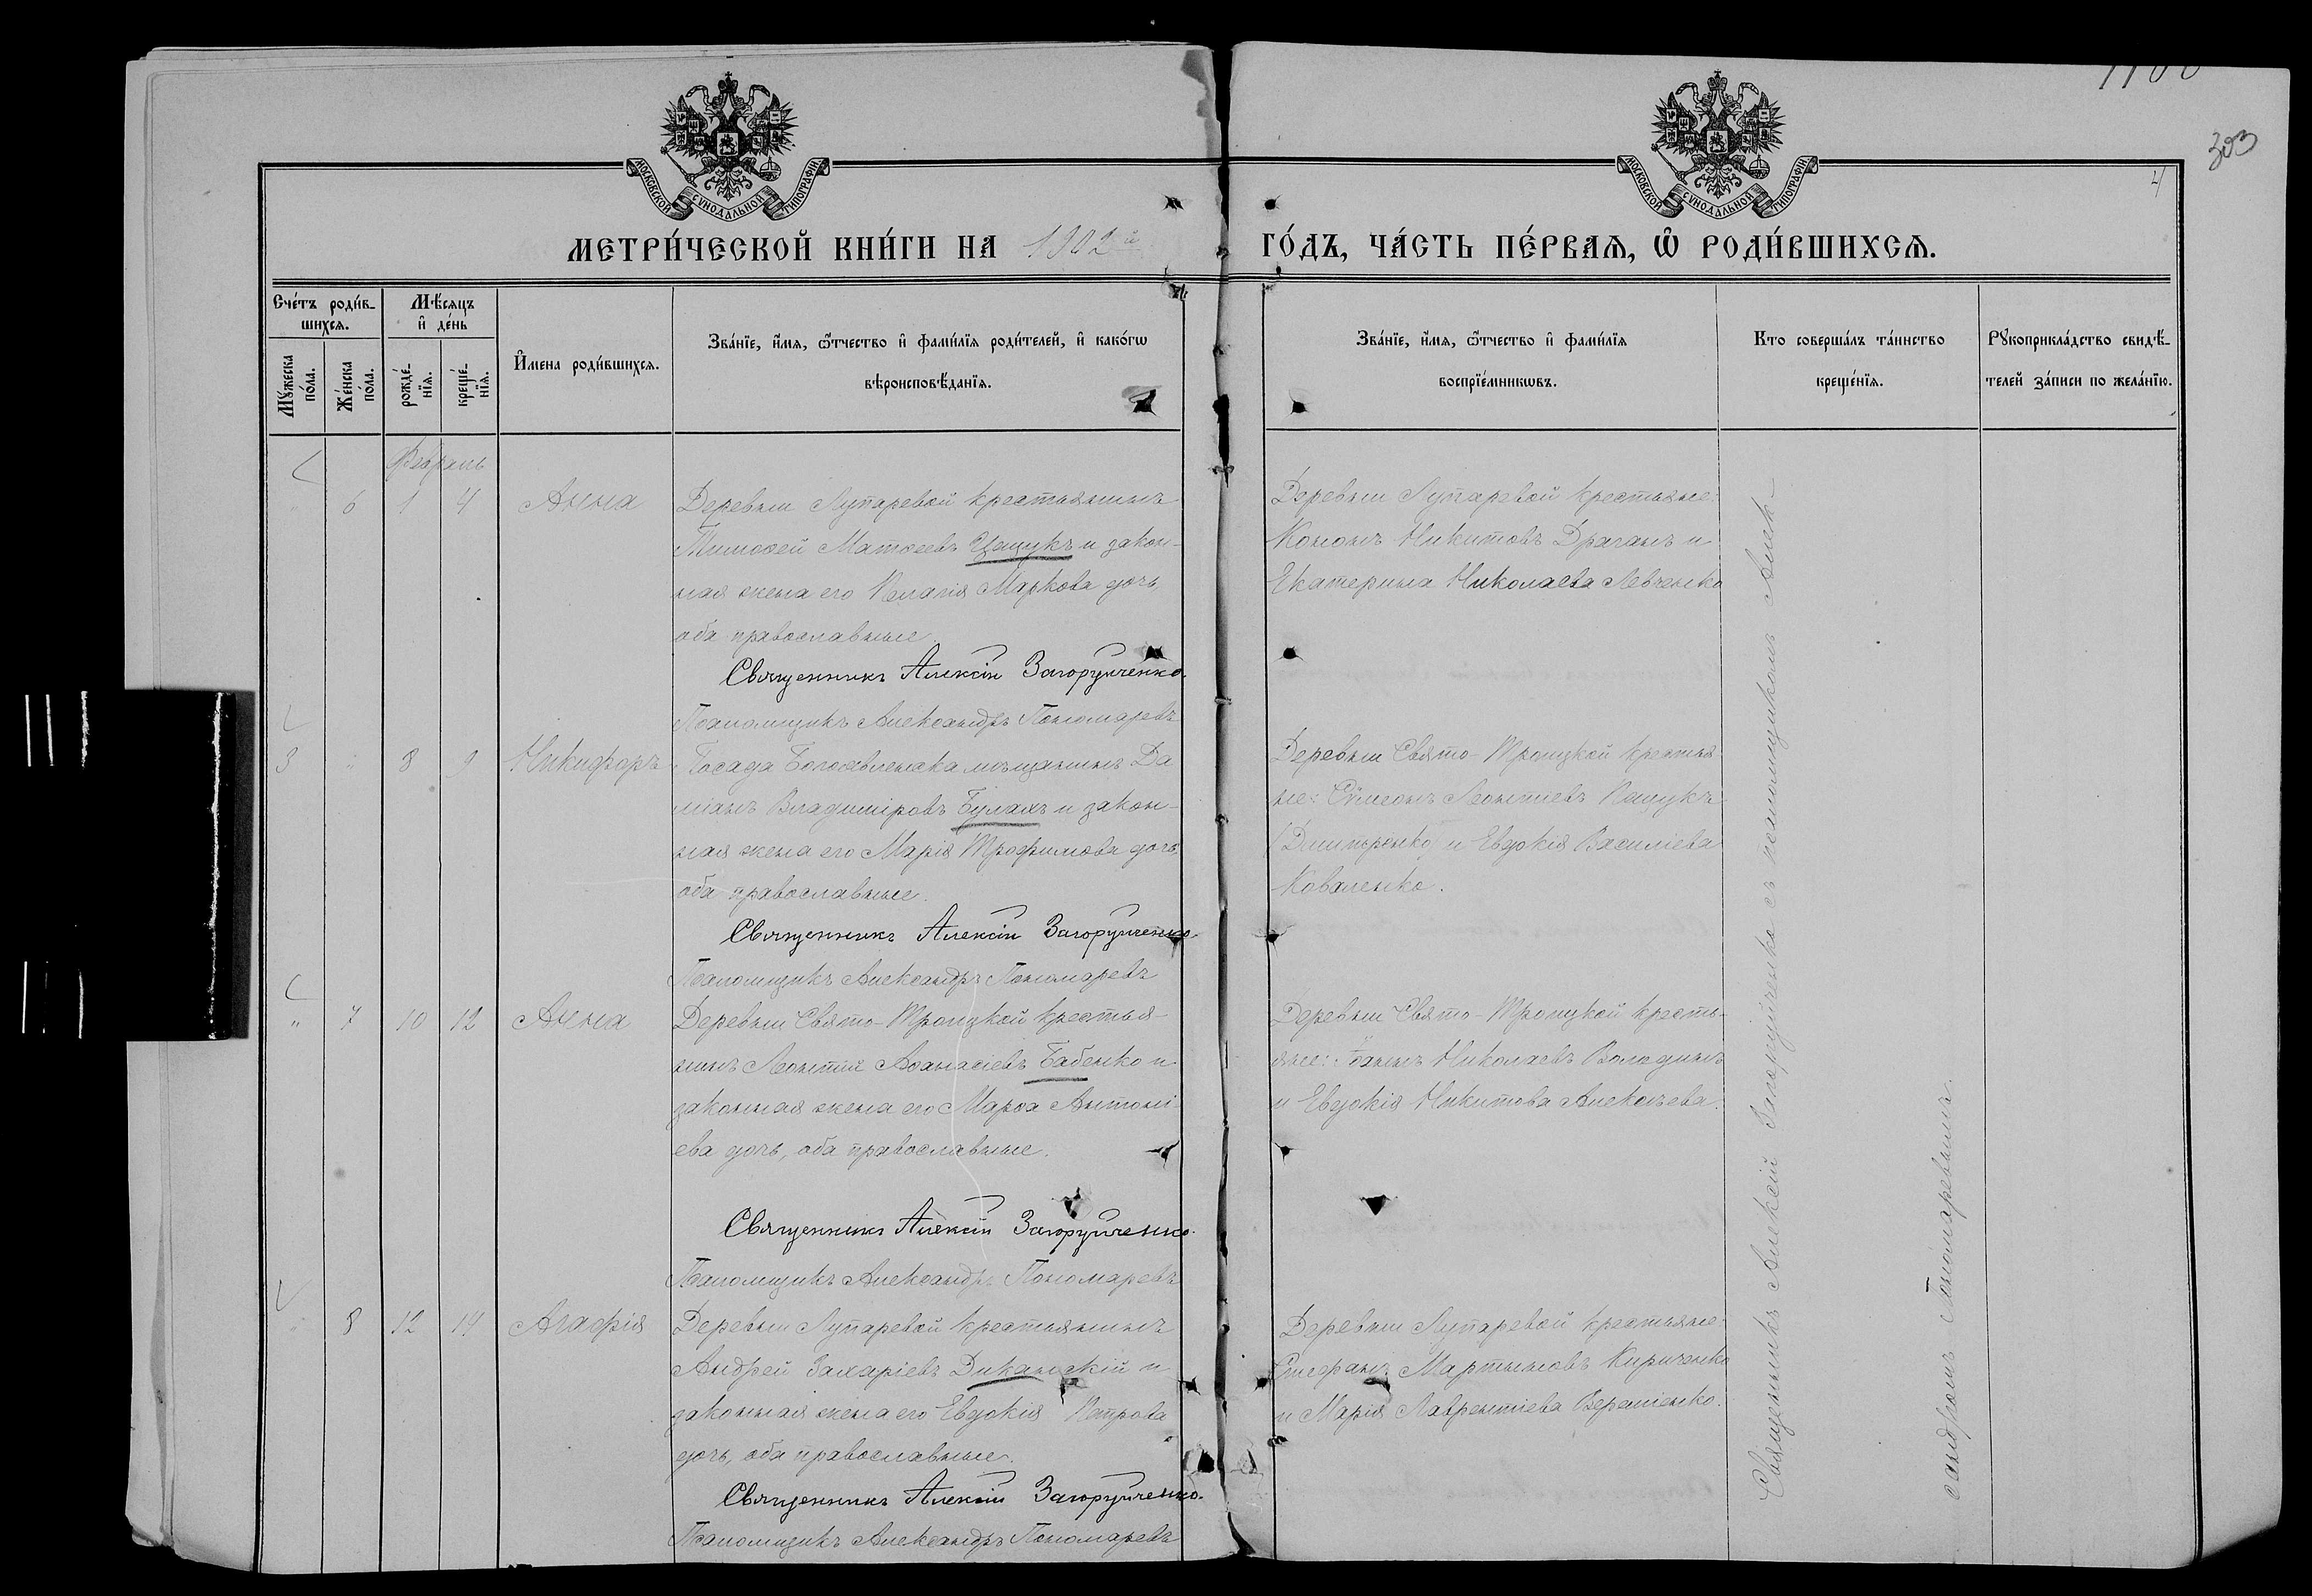 1100
303
4
МОСКОВСКОЙ СѴНОДАЛЬНОЙ ТИПОГРАФІИ
МОСКОВСКОЙ СѴНОДАЛЬНОЙ ТИПОГРАФІИ
МЕТРИ́ЧЕСКОЙ КНИ́ГИ НА 1902й ГО́ДЪ, ЧА́СТЬ ПЕ́РВАѦ, Ѽ РОДИ́ВШИХСѦ.
Сче́тъ роди́в-
шихсѧ.
Мꙋжеска по́ла.
Же́нска по́ла.
Мѣ́сѧцъ
и҆ де́нь
рожде́-
нїѧ.
креще́-
нїѧ.
И҆мена роди́вшихсѧ.
Зва́нїе, и҆́мѧ, ѻ҆́тчество и҆ фами́лїѧ роди́телей, и҆ како́гѡ
вѣроисповѣ́данїѧ.
Зва́нїе, и҆́мѧ, ѻ҆́тчество и҆ фами́лїѧ
воспрїе́мниковъ.
Кто соверша́лъ та́инство
креще́нїѧ.
Рꙋкоприкла́дство свидѣ́-
телей за́писи по жела́нїю.
Февраль
" 6 1 4 Анна
Деревни Лупаревой крестьянинъ
Тимоѳей Матѳеевъ и закон-
ная жена его Пелагія Маркова дочь,
оба православные.
Священникъ Алексій Загоруйченко.
Псаломщикъ Александръ Пономаревъ
Деревни Лупаревой крестьяне:
Кононъ Никитовъ Драганъ и
Екатерина Николаева Левченко
3 " 8 9 Никифоръ
Посада Богоявленска мѣщанинъ Да
міанъ Владиміровъ Булахъ и закон-
ная жена его Марія Трофимова дочь,
оба православные.
Священникъ Алексій Загоруйченко.
Псаломщикъ Александръ Пономаревъ
Деревни Свято-Троицкой крестья-
не: Сѵмеонъ Леонтіевъ Пащукъ
и Евдокія Василіева
Коваленко.
" 7 10 12 Анна
Деревни Свято-Троицкой крестья-
нинъ Леонтій Аѳанасіевъ Бабенко и
законная жена его Марѳа Антоні-
ева дочь, оба православные.
Священникъ Алексій Загоруйченко.
Псаломщикъ Александръ Пономаревъ
Деревни Свято-Троицкой кресть-
яне: Іоаннъ Николаевъ Володинъ
и Евдокія Никитова Алексѣева.
" 8 12 14 Агафія
Деревни Лупаревой крестьянинъ
Андрей Захаріевъ Диканьскій и
законная жена его Евдокія Петрова
дочь, оба православные.
Священникъ Алексій Загоруйченко.
Псаломщикъ Александръ Пономаревъ
Деревни Лупаревой крестьяне:
Стефанъ Мартиновъ Кириченко
и Марія Лаврентіева
Священникъ Алексій Загоруйченко съ псаломщикомъ Алек-
сандромъ Пономаревымъ.